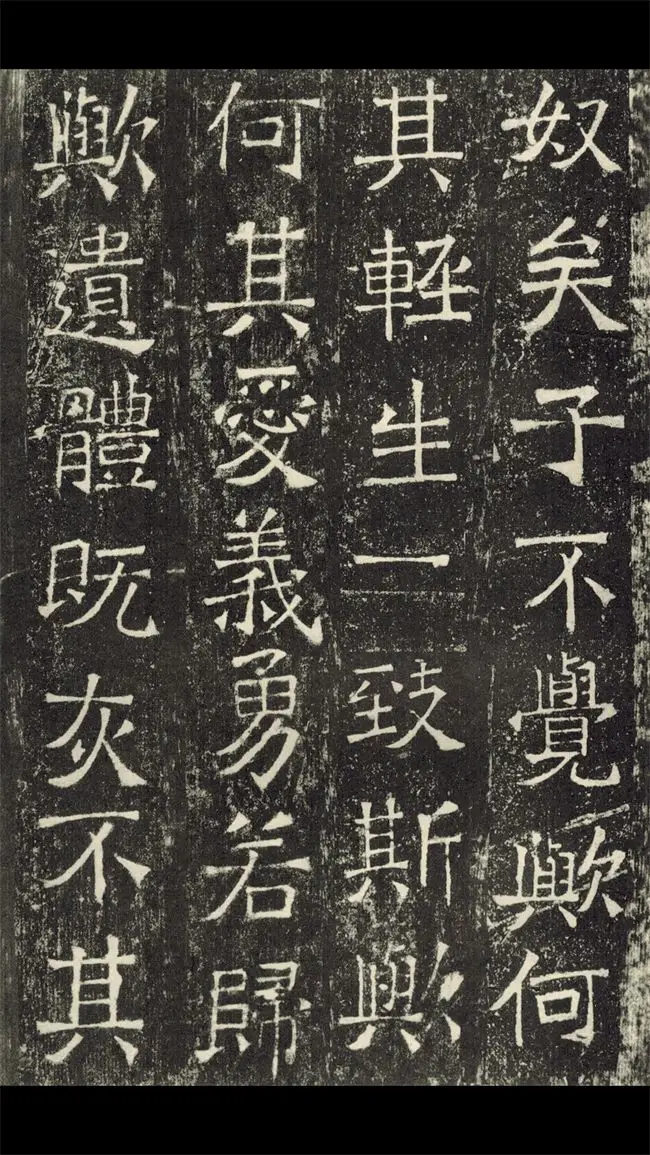 奴矣子不覺歟何
其輕生一致斯歟
何其愛義勇若歸
歟遺體既灰不其